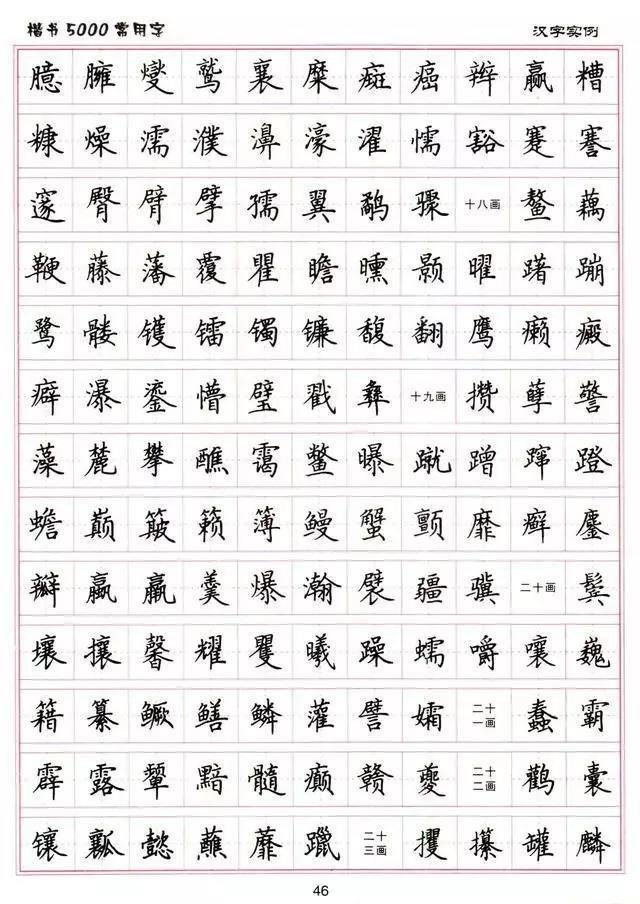 楷书5000常用字 汉字实例
臆 臃 燮 鹫 襄 糜 癍 癌 辫 赢 糟
糠 燥 濡 濮 濞 濠 濯 懦 豁 蹇 謇
邃 臀 臂 擘 孺 翼 鹬 骤 十八画 鳌 藕
鞭 藤 藩 覆 瞿 瞻 曛 颢 曜 躇 蹦
鹭 髅 镬 镭 镯 镰 馥 翻 鹰 癞 癜
癖 瀑 鎏 懵 璧 戳 彝 十九画 攒 孽 警
藻 麓 攀 醮 霭 鳖 曝 蹴 蹭 蹿 蹬
蟾 巅 簸 籁 簿 鳗 蟹 颤 靡 癣 鏖
瓣 蠃 羸 羹 爆 瀚 襞 疆 骥 二十画 鬓
壤 攘 馨 耀 矍 曦 躁 蠕 嚼 嚷 巍
籍 纂 鳜 鳝 鳞 灌 譬 孀 二十一画 蠢 霸
霹 露 颦 黯 髓 癫 赣 夔 二十二画 鹳 囊
镶 瓤 懿 蘸 蘼 躐 二十三画 攫 攥 罐 麟
46